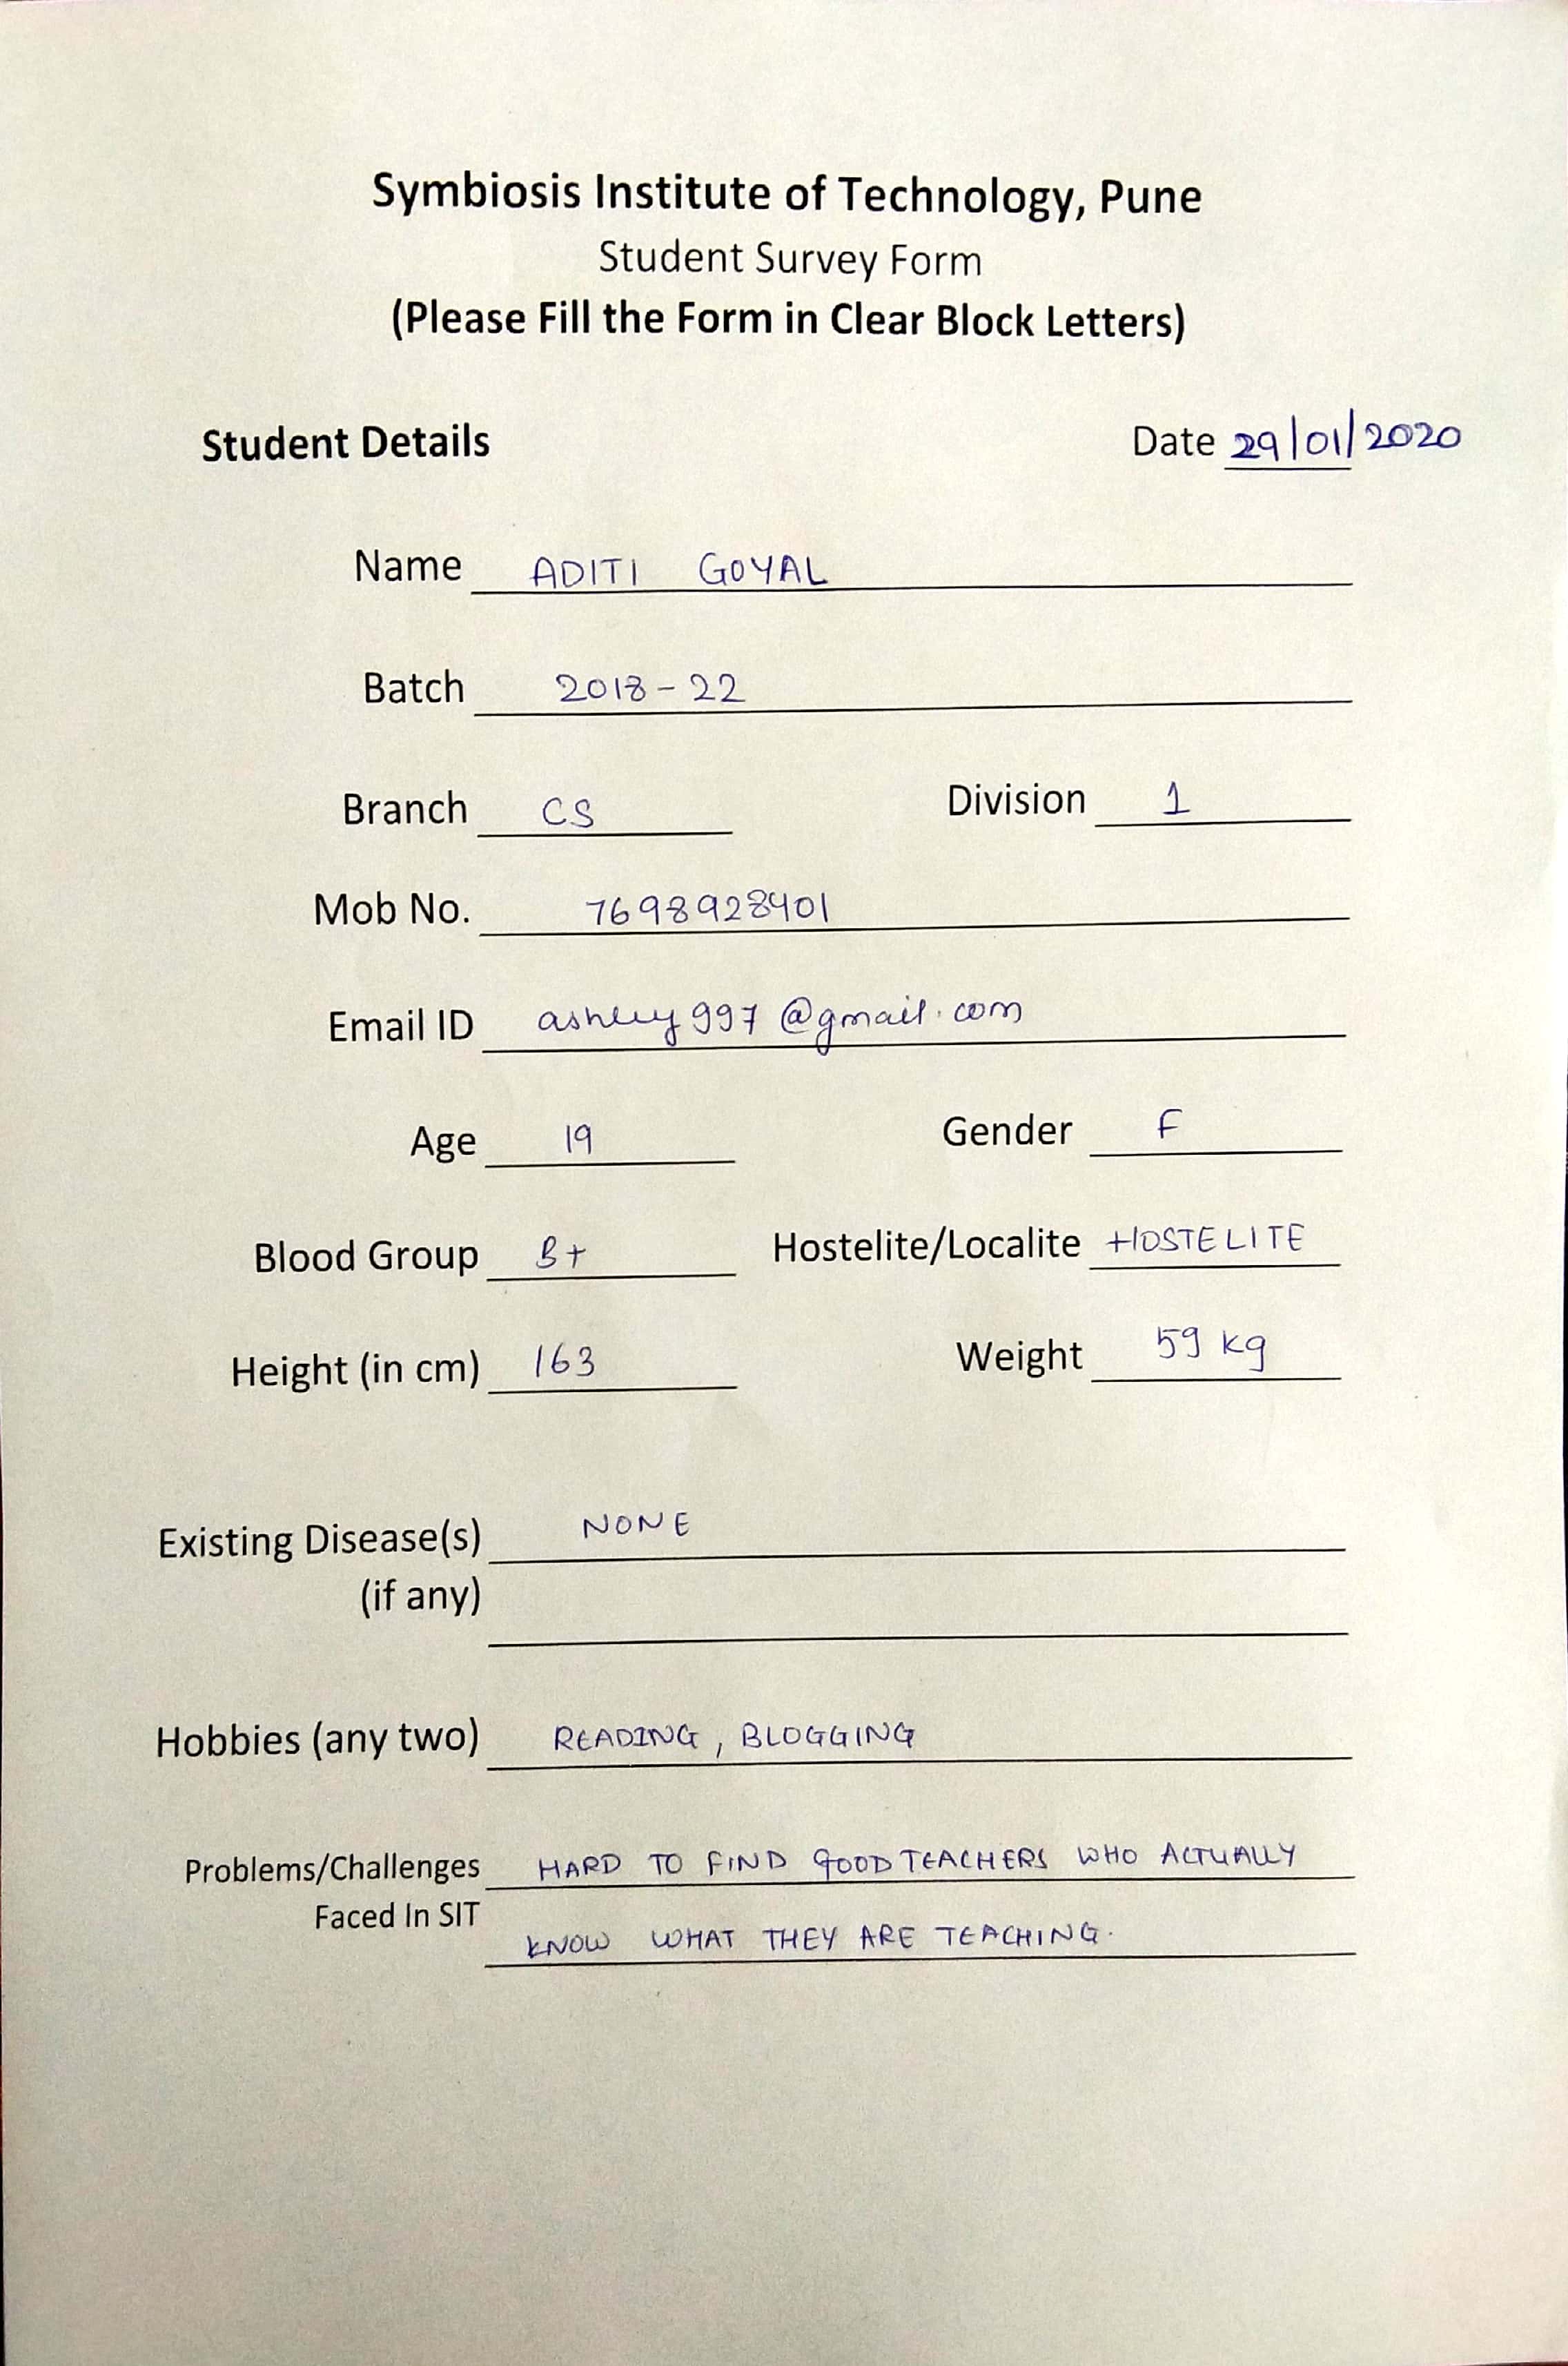 Symbiosis Institute of Technology, Pune
Student Survey Form
(Please Fill the Form in Clear Block Letters)
Student Details Date 29/01/2020
Name ADITI GOYAL
Batch 2018-22
Branch CS Division 1
Mob No. 7698928401
Email ID ashley997@gmail.com
Age 19 Gender F
Blood Group B+ Hostelite/Localite HOSTELITE
Height (in cm) 163 Weight 59 kg
Existing Disease(s) NONE
(if any)
Hobbies (any two) READING, BLOGGING
Problems/Challenges HARD TO FIND GOOD TEACHERS WHO ACTUALLY
Faced In SIT KNOW WHAT THEY ARE TEACHING.